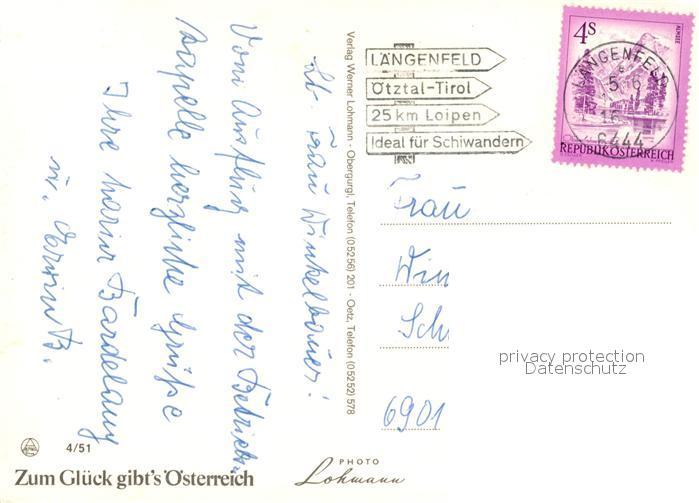 Lb. Frau Winkelbauer!
Vom Ausflug mit der Betriebs-
kapelle herzliche Grüße
Ihre
u. Erwin B.
Verlag Werner Lohmann - Obergurgl, Telefon (05256) 201 - Oetz, Telefon (05252) 578
LÄNGENFELD
Ötztal-Tirol
25 km Loipen
Ideal für Schiwandern
4S
ALMSEE
REPUBLIK ÖSTERREICH
LÄNGENFELD
6444
Frau
Win
Sch
6901
privacy protection
Datenschutz
4/51
Zum Glück gibt's Österreich
PHOTO
Lohmann